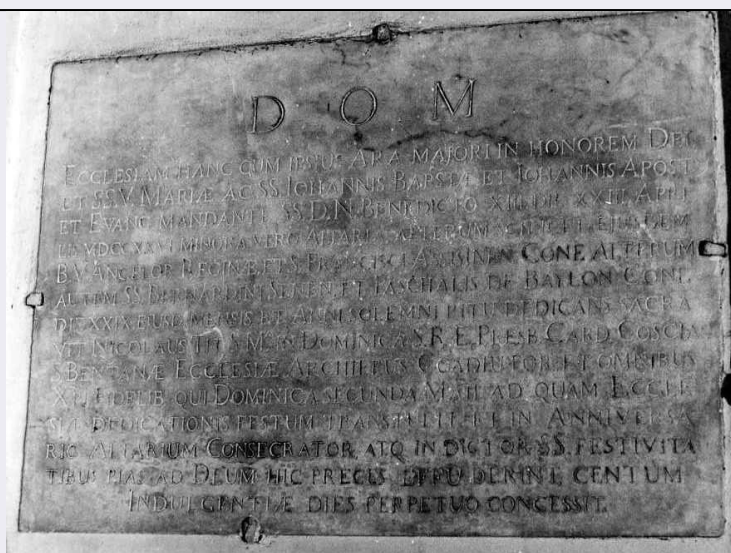 D O M
ECCLESIAM HANC CUM IPSIUS ARA MAJORI IN HONOREM DEI
ET SS. V. MARIÆ AC SS. IOHANNIS BAPSTÆ ET IOHANNIS APOST
ET EVANG MANDANTE SS. D. N. BENEDICTO XIII. DIE XXIII. APRI
MDCCXXVI MINORA VERO ALTARIA ALTERUM
B. V. ANGELOR REGINÆ ET S. FRANCISCI ASSISINEN CONF. ALTERUM
AUTEM SS. BERNARDINI SENEN. ET PASCHALIS DE BAYLON CONF.
DIE XXIX EIUSD MENSIS ET ANNI SOLEMNI RITU DEDICANS SACRA
VIT NICOLAUS TIT S. M. IN DOMINICA S. R. E. PRESB. CARD COSCIA
S. BENTANÆ ECCLESIÆ ARCHIEPUS COADIUTOR ET OMNIBUS
XTI FIDELIB QUI DOMINICA SECUNDA MAII AD QUAM ECCLE
SIÆ DEDICATIONIS FESTUM TRANSTULIT ET IN ANNIVERSA
RIO ALTARIUM CONSECRATOR. ATQ. IN DICTOR. SS. FESTIVITA
TIBUS PIAS AD DEUM HIC PRECES EFFUDERINT CENTUM
INDULGENTIÆ DIES PERPETUO CONCESSIT.